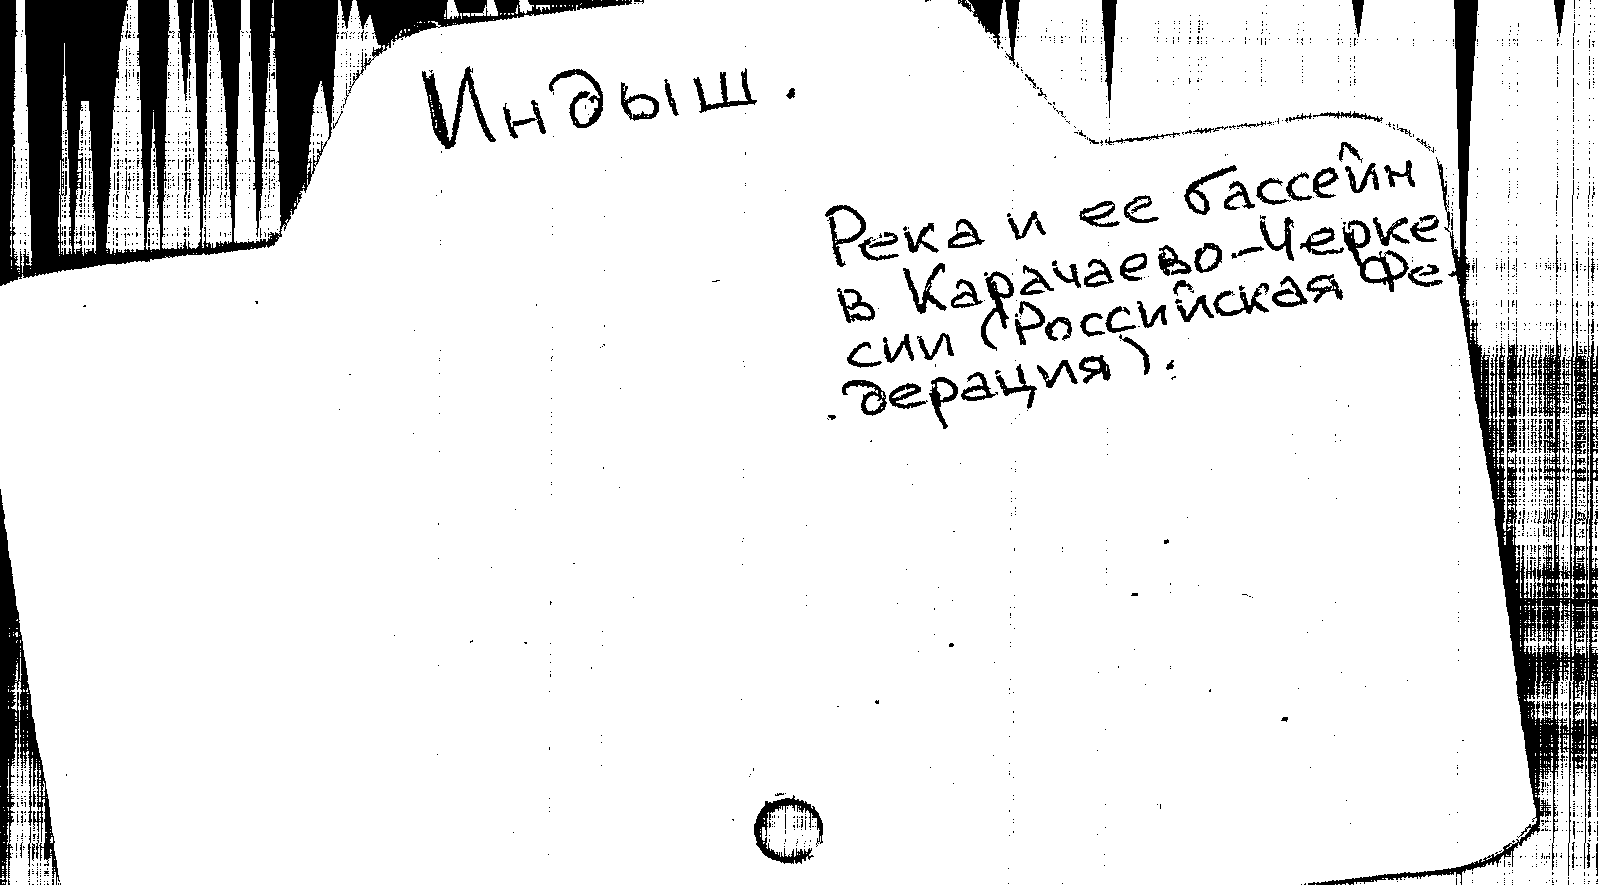 Индыш.
Река и ее бассейн
в Карачаево-Черке
сии (Российская Фе-
дерация).